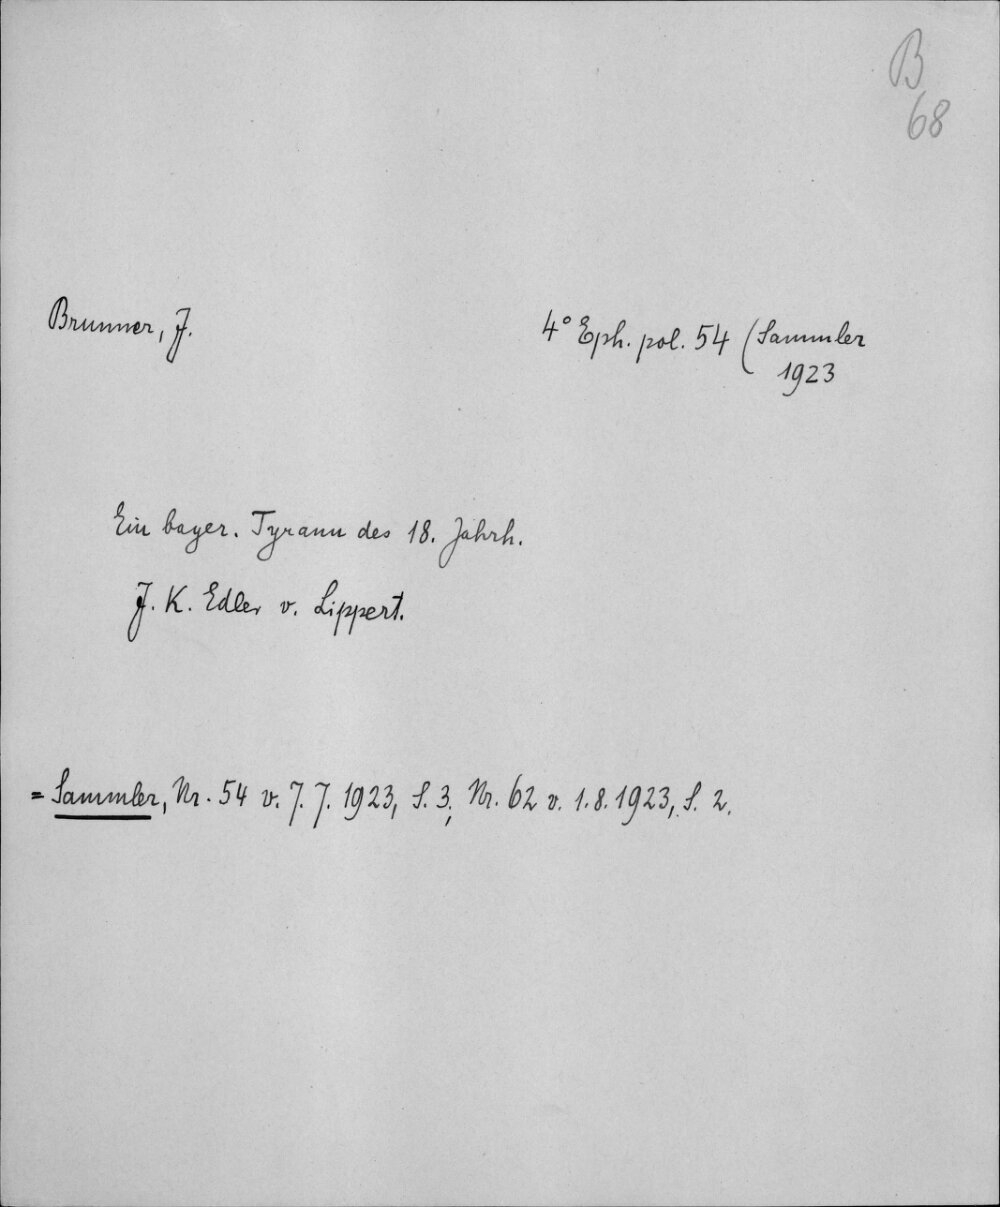 B
68
Brunner, J.
4° Eph. pol. 54 (Sammler
1923
Ein bayer. Tyrann des 18. Jahrh.
J. K. Edler v. Lippert.
= Sammler, Nr. 54 v. 7. 7. 1923, S. 3; Nr. 62 v. 1. 8. 1923, S. 2.